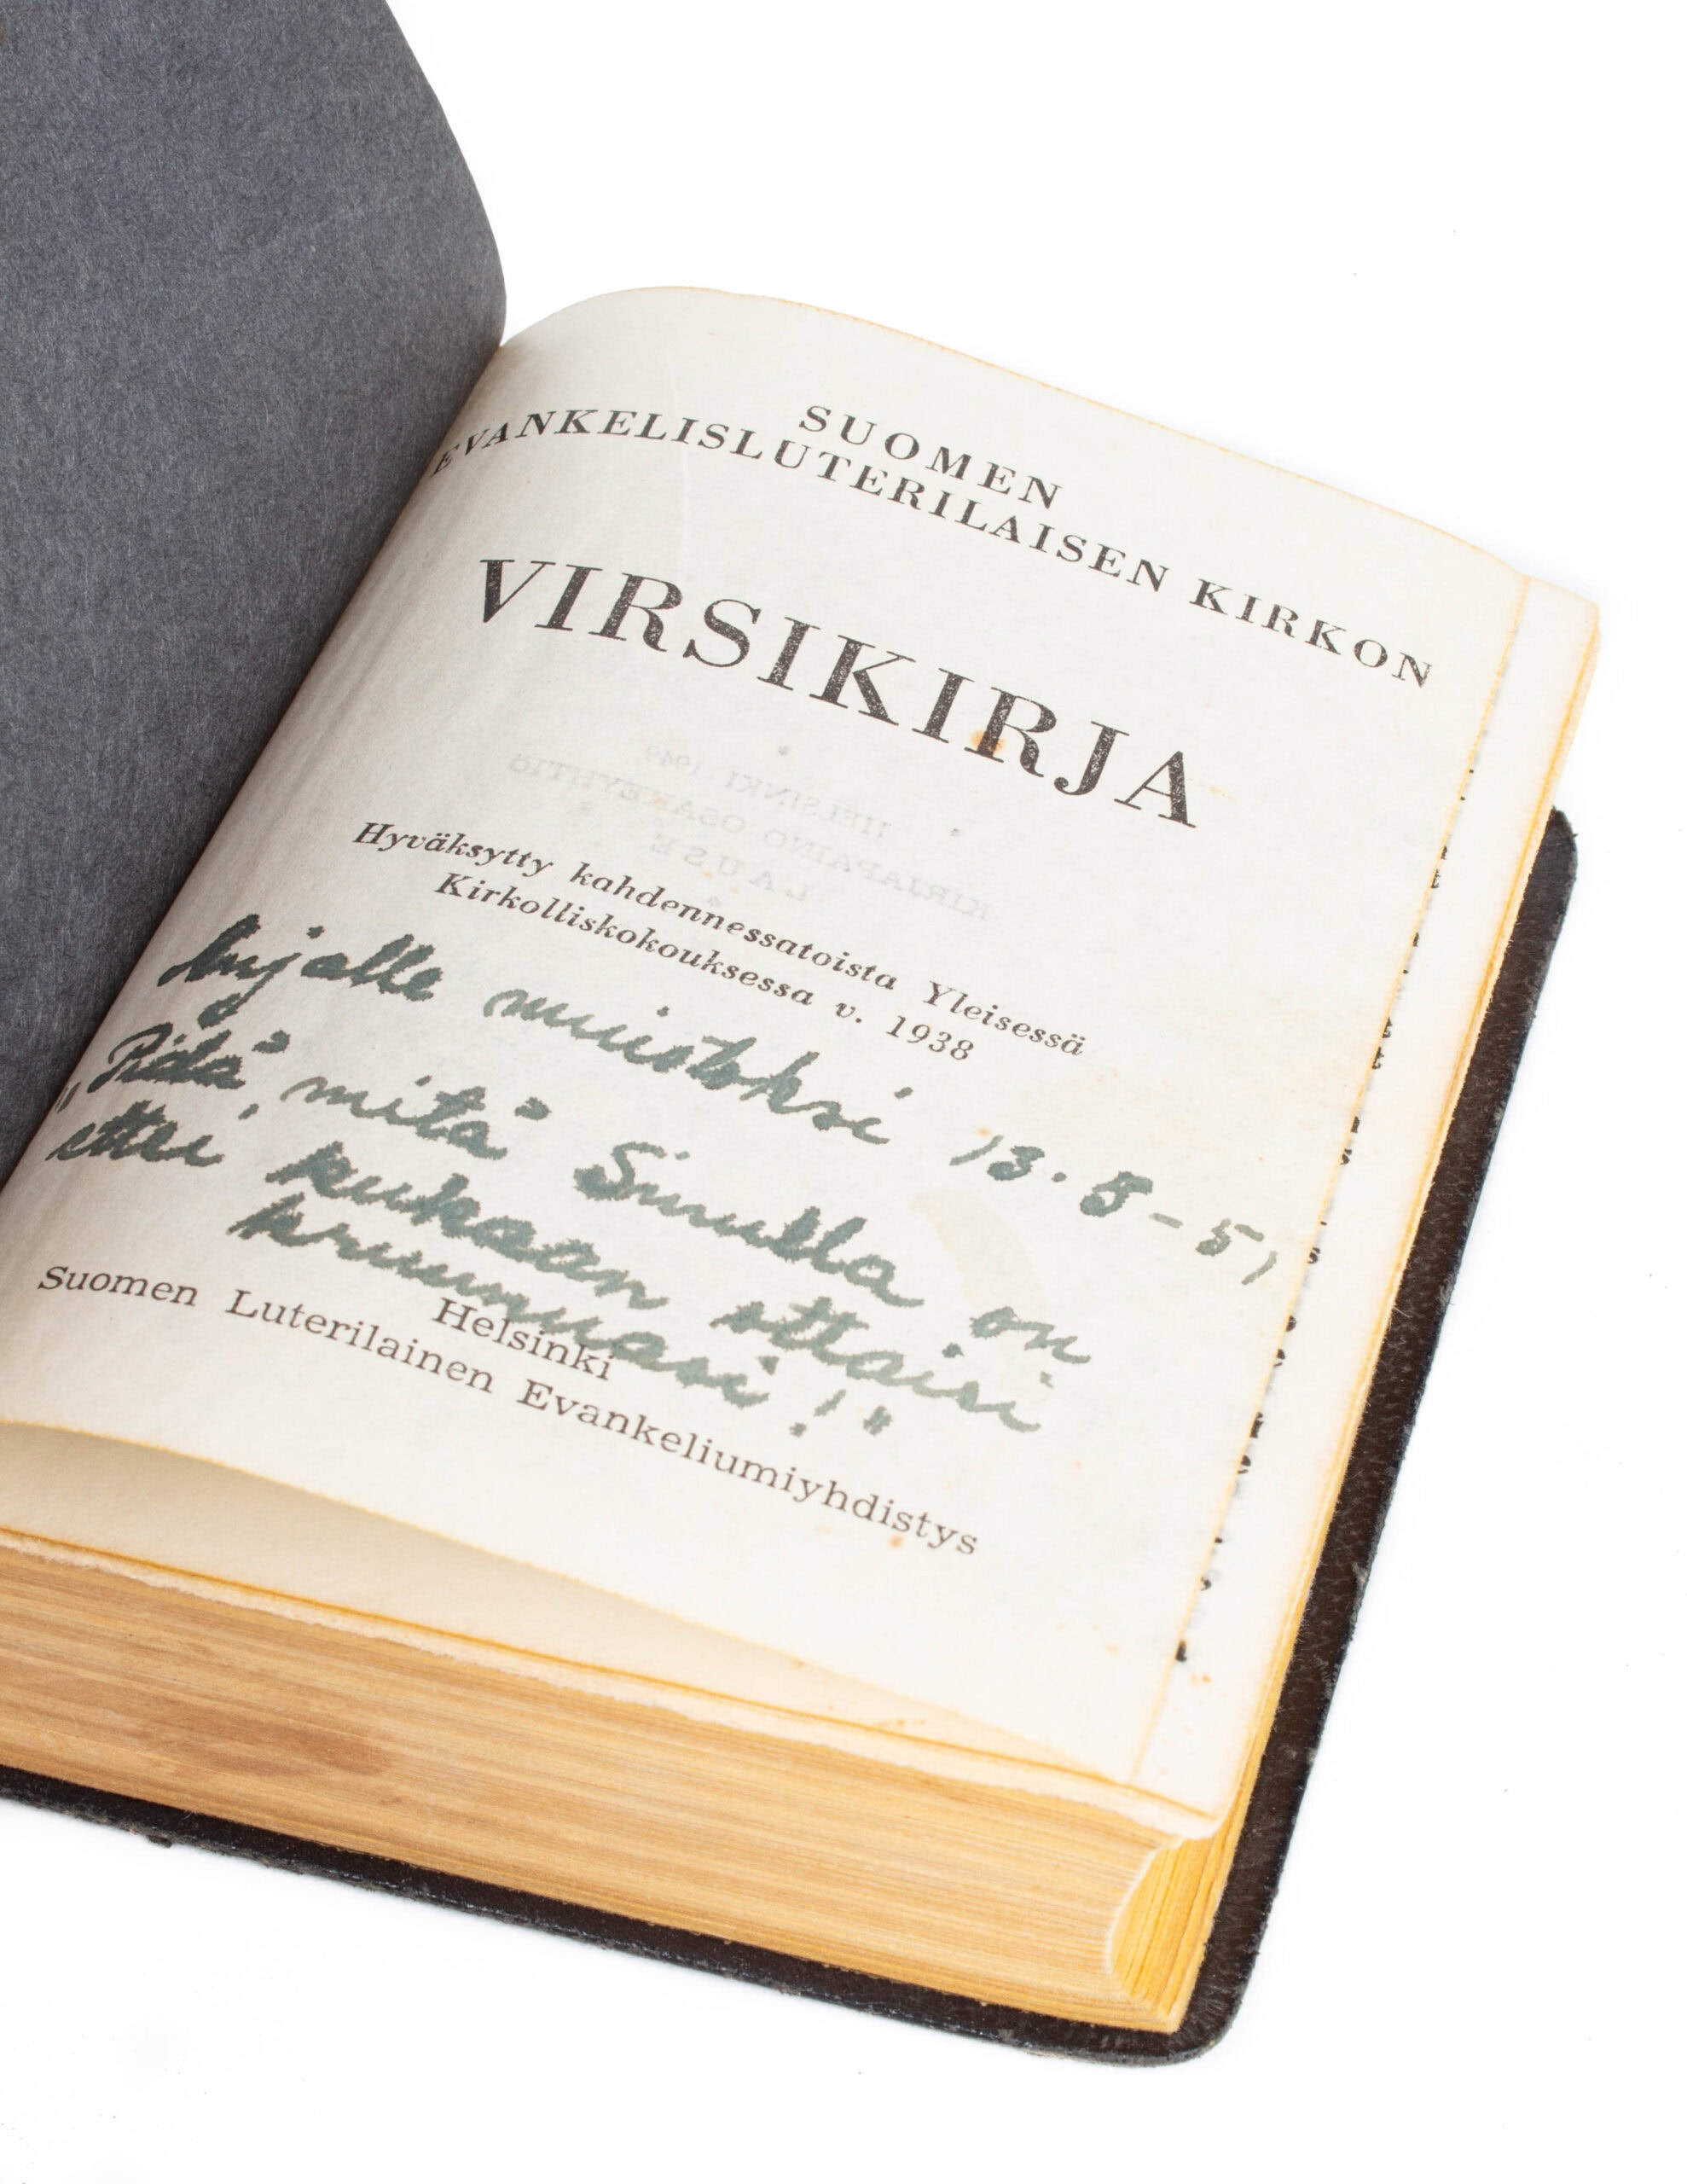 SUOMEN
EVANKELISLUTERILAISEN KIRKON
VIRSIKIRJA
Hyväksytty kahdennessatoista Yleisessä
Kirkolliskokouksessa v. 1938
muistoksi 13.5-51
„Pidä, mitä Sinulla on
ettei kukaan ottaisi
kruunuasi!"
Helsinki
Suomen Luterilainen Evankeliumiyhdistys
HELSINKI 1949
KIRJAPAINO-OSAKEYHTIÖ
LAUSE